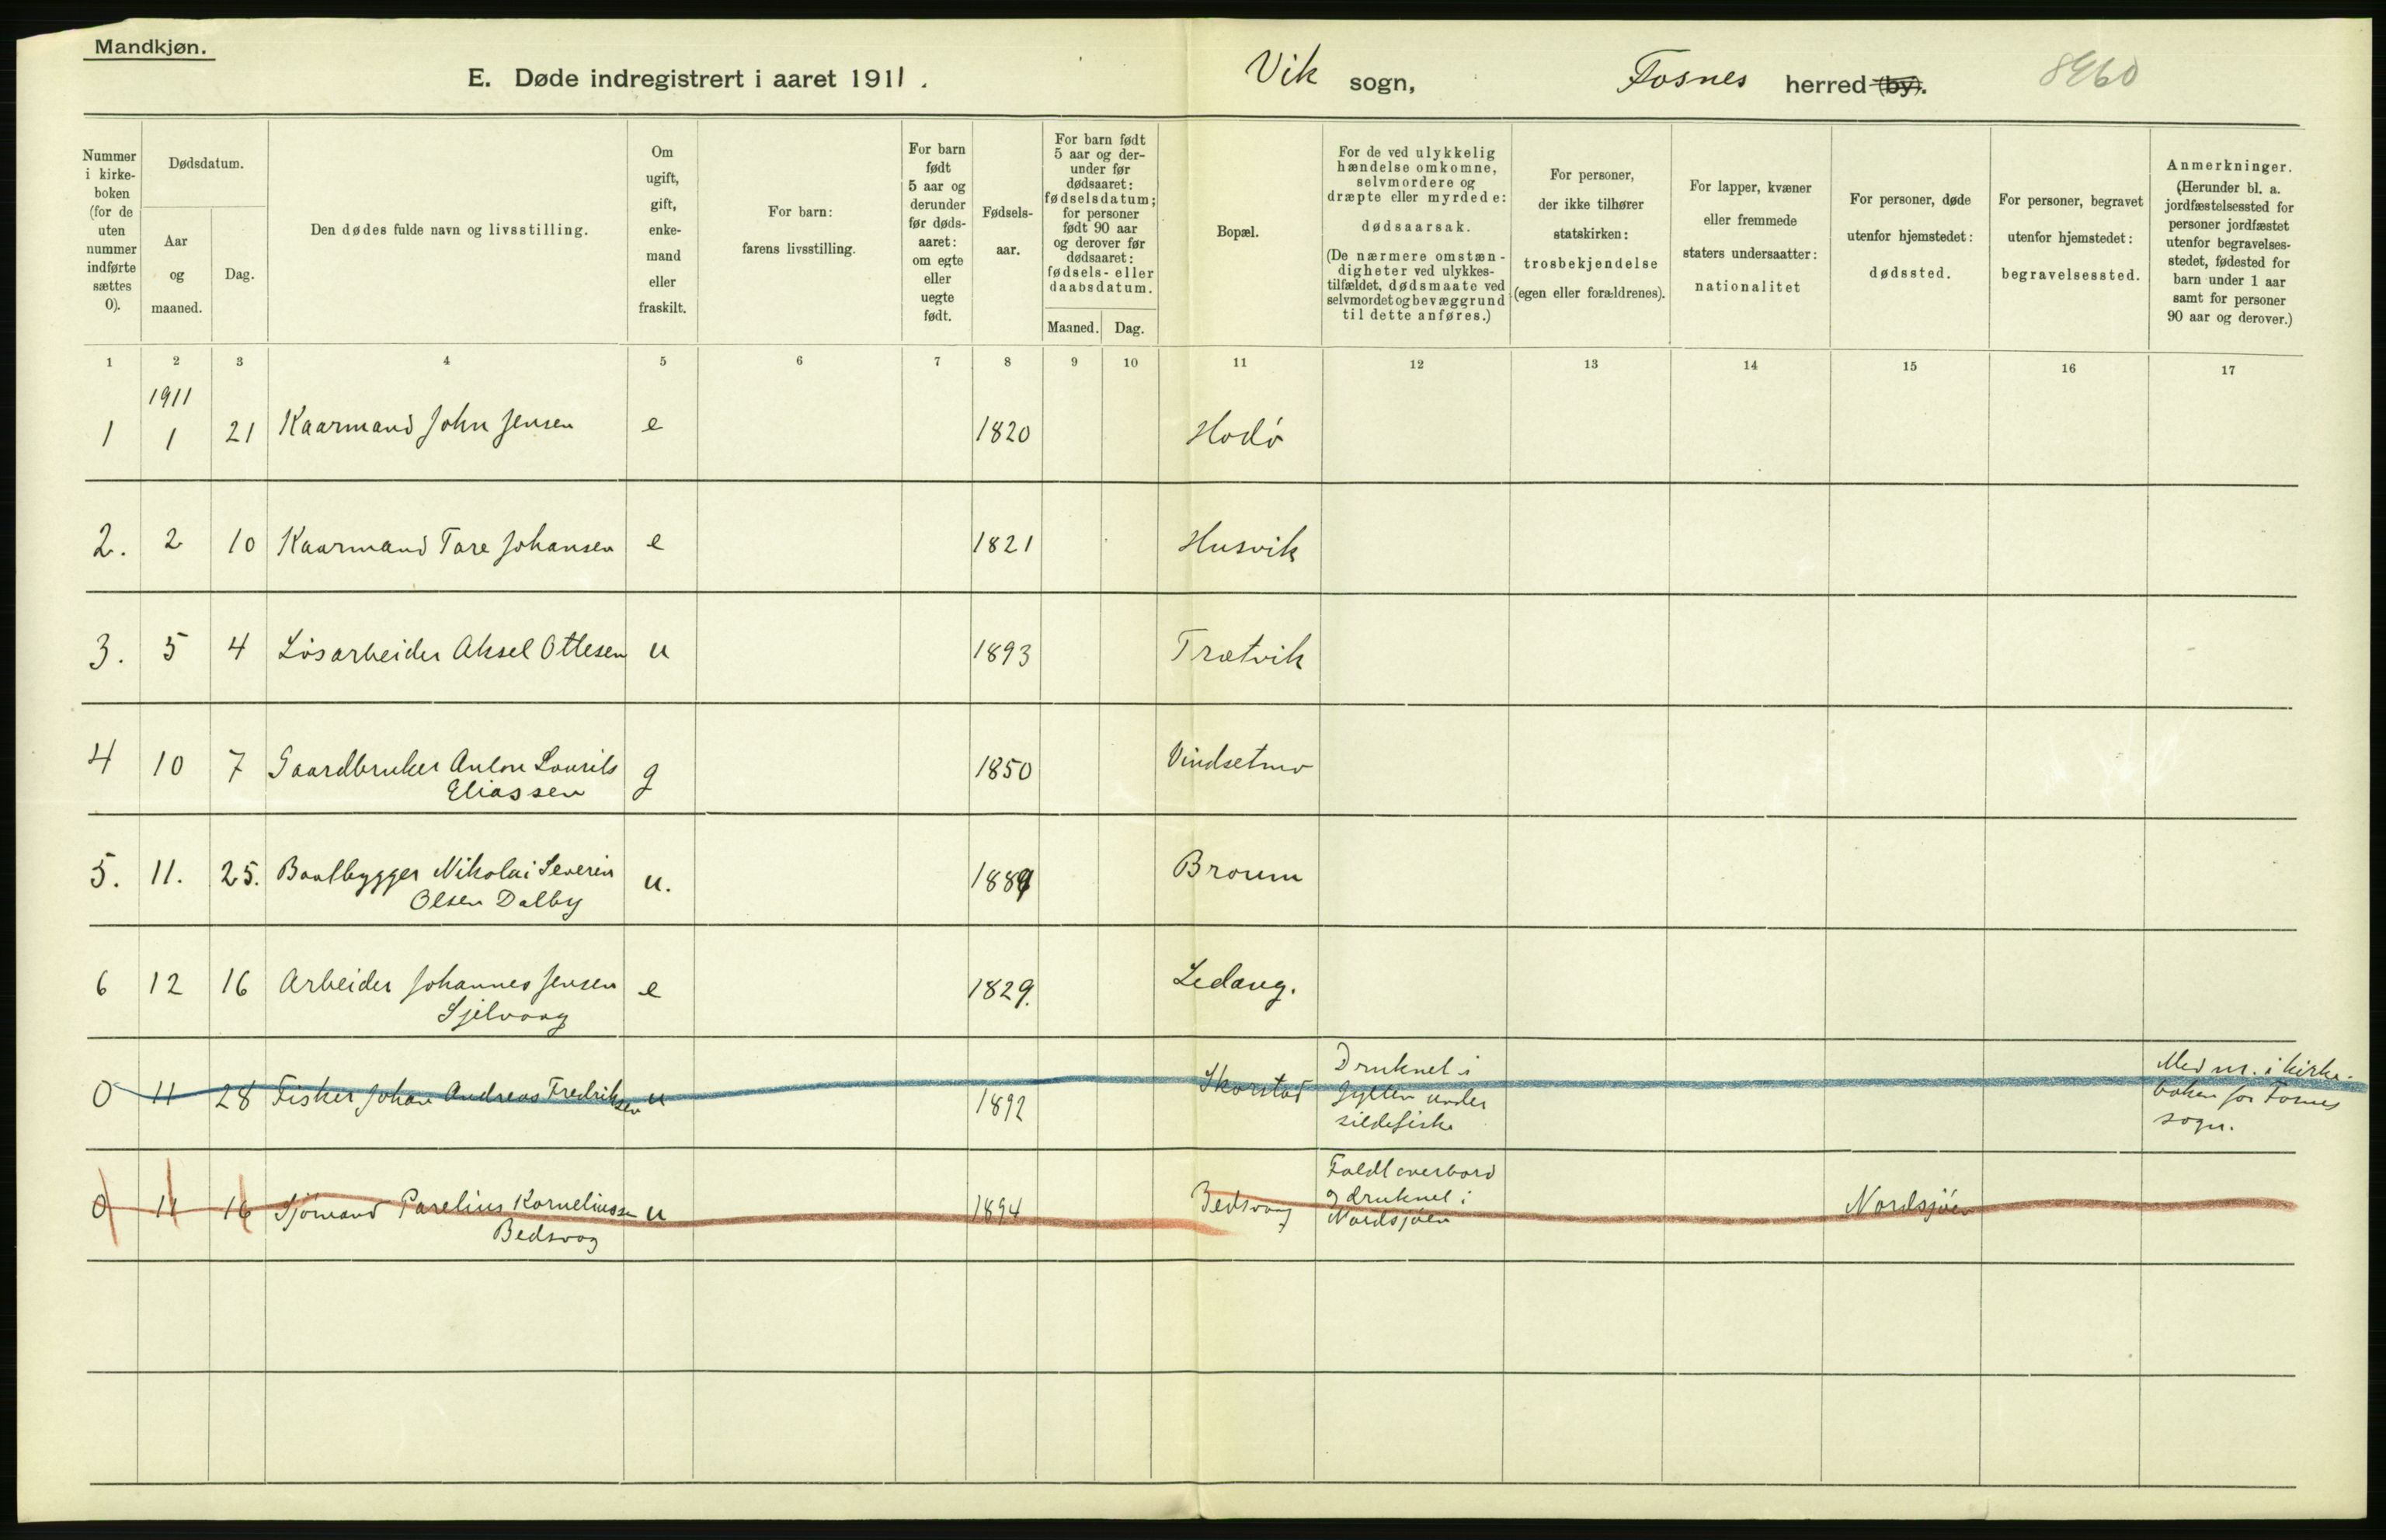 Mandkjøn.
E. Døde indregistrert i aaret 1911.
Vik sogn, Fosnes herred (by). 8960
Nummer i kirke-boken (for de uten nummer indførte sættes 0).
Dødsdatum.
Aar og maaned.
Dag.
Den dødes fulde navn og livsstilling.
Om ugift, gift, enke-mand eller fraskilt.
For barn: farens livsstilling.
For barn født 5 aar og derunder før døds-aaret: om egte eller uegte født.
Fødsels-aar.
For barn født 5 aar og der-under før dødsaaret: fødselsdatum; for personer født 90 aar og derover før dødsaaret: fødsels- eller daabsdatum.
Maaned. Dag.
Bopæl.
For de ved ulykkelig hændelse omkomne, selvmordere og dræpte eller myrdede: dødsaarsak. (De nærmere omstæn-digheter ved ulykkes-tilfældet, dødsmaate ved selvmordet og bevæggrund til dette anføres.)
For personer, der ikke tilhører statskirken: trosbekjendelse (egen eller forældrenes).
For lapper, kvæner eller fremmede staters undersaatter: nationalitet
For personer, døde utenfor hjemstedet: dødssted.
For personer, begravet utenfor hjemstedet: begravelsessted.
Anmerkninger. (Herunder bl. a. jordfæstelsessted for personer jordfæstet utenfor begravelses-stedet, fødested for barn under 1 aar samt for personer 90 aar og derover.)
1 2 3 4 5 6 7 8 9 10 11 12 13 14 15 16 17
1911
1 1 21 Kaarmand John Jensen e 1820 Hodø
2. 2 10 Kaarmand Tore Johansen e 1821 Husvik
3. 5 4 Løsarbeider Aksel Ottesen u 1893 Trætvik
4 10 7 Gaardbruker Anton Lourits g 1850 Vindsetmo
Eliassen
5. 11. 25. Baatbygger Nikolai Severin u. 1889 Broum
Olsen Dalby
6 12 16 Arbeider Johannes Jensen e 1829. Ledang.
Sjelvaag
0 11 28 Fisker Johan Andreas Fredriksen u 1892 Skorstad
Druknet i
under
sildefiske
Med nr. i kirke-
boken for Fosnes
sogn.
0 11 16 Sjømand Parelius Korneliussen u 1894 Bedsvaag
Bedsvag
Faldt overbord
og druknet i
Nordsjøen
Nordsjøen